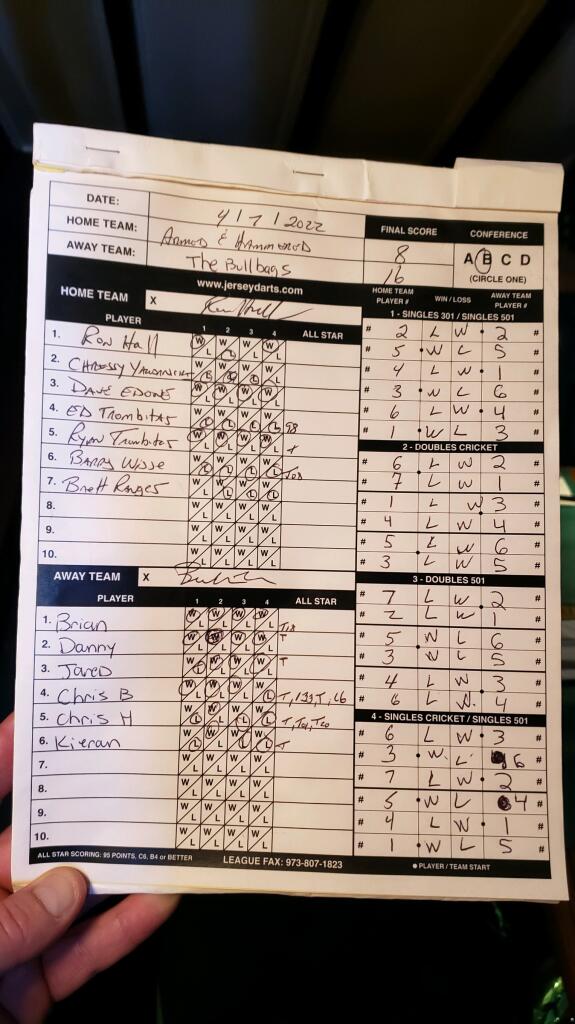 DATE: 4/7/2022
HOME TEAM: ARMED & HAMMERED
AWAY TEAM: The Bullbags
FINAL SCORE
8
16
CONFERENCE
A B C D
(CIRCLE ONE)
www.jerseydarts.com
HOME TEAM X
PLAYER 1 2 3 4 ALL STAR
1. RON HALL
2.
3. DAVE
4. ED TROMBITAS
5. RYAN TROMBITAS
6. BARRY
7. BRETT
8.
9.
10.
AWAY TEAM X
PLAYER 1 2 3 4 ALL STAR
1. Brian
2. Danny T
3. Jared T
4. Chris B
5. Chris H
6. Kieran T
7.
8.
9.
10.
ALL STAR SCORING: 95 POINTS, C6, B4 or BETTER
LEAGUE FAX: 973-807-1823
HOME TEAM PLAYER # WIN / LOSS AWAY TEAM PLAYER #
1 - SINGLES 301 / SINGLES 501
# 2 L W 2 #
# 5 W L 5 #
# 4 L W 1 #
# 3 W L 6 #
# 6 L W 4 #
# 1 W L 3 #
2 - DOUBLES CRICKET
# 6 L W 2 #
# 7 L W 1 #
# 1 L W 3 #
# 4 L W 4 #
# 5 L W 6 #
# 3 L W 5 #
3 - DOUBLES 501
# 7 L W 2 #
# 2 L W 1 #
# 5 W L 6 #
# 3 W L 5 #
# 4 L W 3 #
# 6 L W 4 #
4 - SINGLES CRICKET / SINGLES 501
# 6 L W 3 #
# 3 W L 6 #
# 7 L W 2 #
# 5 W L 4 #
# 4 L W 1 #
# 1 W L 5 #
PLAYER / TEAM START